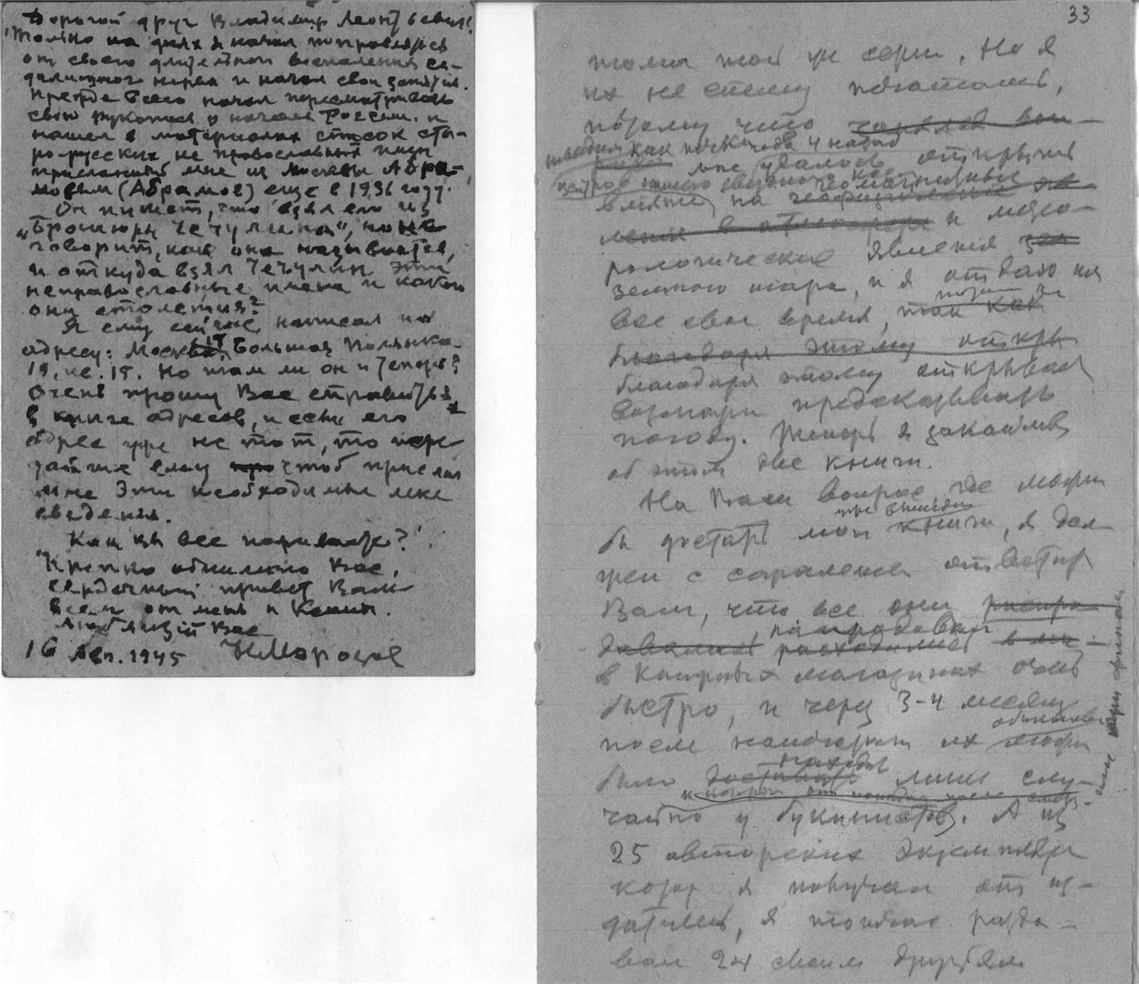 Дорогой друг Владимир Леонтьевич!
Только на днях я начал поправляться
от своего длительного воспаления се-
далищного нерва и начал свои занятия.
Прежде всего начал пересматривать
свою рукопись о начале России. и
нашел в материалах список ста-
ро-русских не православных имен
присланный мне из Москвы Абра-
мовым (Абрамов) еще в 1936 году.
Он пишет, что взял его из
„Брошюры Чечулина", но не
говорит, как она называется,
и откуда взял Чечулин эти
неправославные имена и какого
они столетия?
Я ему сейчас написал по
адресу: Москва, 17 Большая Полянка.
19, кв. 15. Но там ли он и теперь?
Очень прошу Вас справиться
в книге адресов, и если его
адрес уже не тот, то пере-
дайте ему чтоб прислал
мне эти необходимые мне
сведения.
Как вы все поживаете?
Крепко обнимаю Вас,
сердечный привет Вам
всем от меня и Ксаны.
Любящий Вас
16 Авг. 1945 Н Морозов
33
тома той же серии. Но я
их не спешу печатать,
потому что
мне удалось открыть
влияние на геофизические
и метео-
рологические явления
земного шара, и я отдаю на
все свое время, так как
благодаря этому откры
благодаря этому открывает
возможн предсказывать
погоду. Теперь я заканчив
об этом две книги.
На Ваш вопрос где можн
бы достать мои книги, я дол-
жен с сожалением ответить
Вам, что все они распро-
давались расходились
в книжных магазинах очень
быстро, и через 3-4 месяц
после напечатан их можн
было доставать лишь слу-
чайно у букинистов. А из
25 авторских экземпляр
котор я получал от из-
дательств, я тотчас разда-
вал 24 своим друзьям